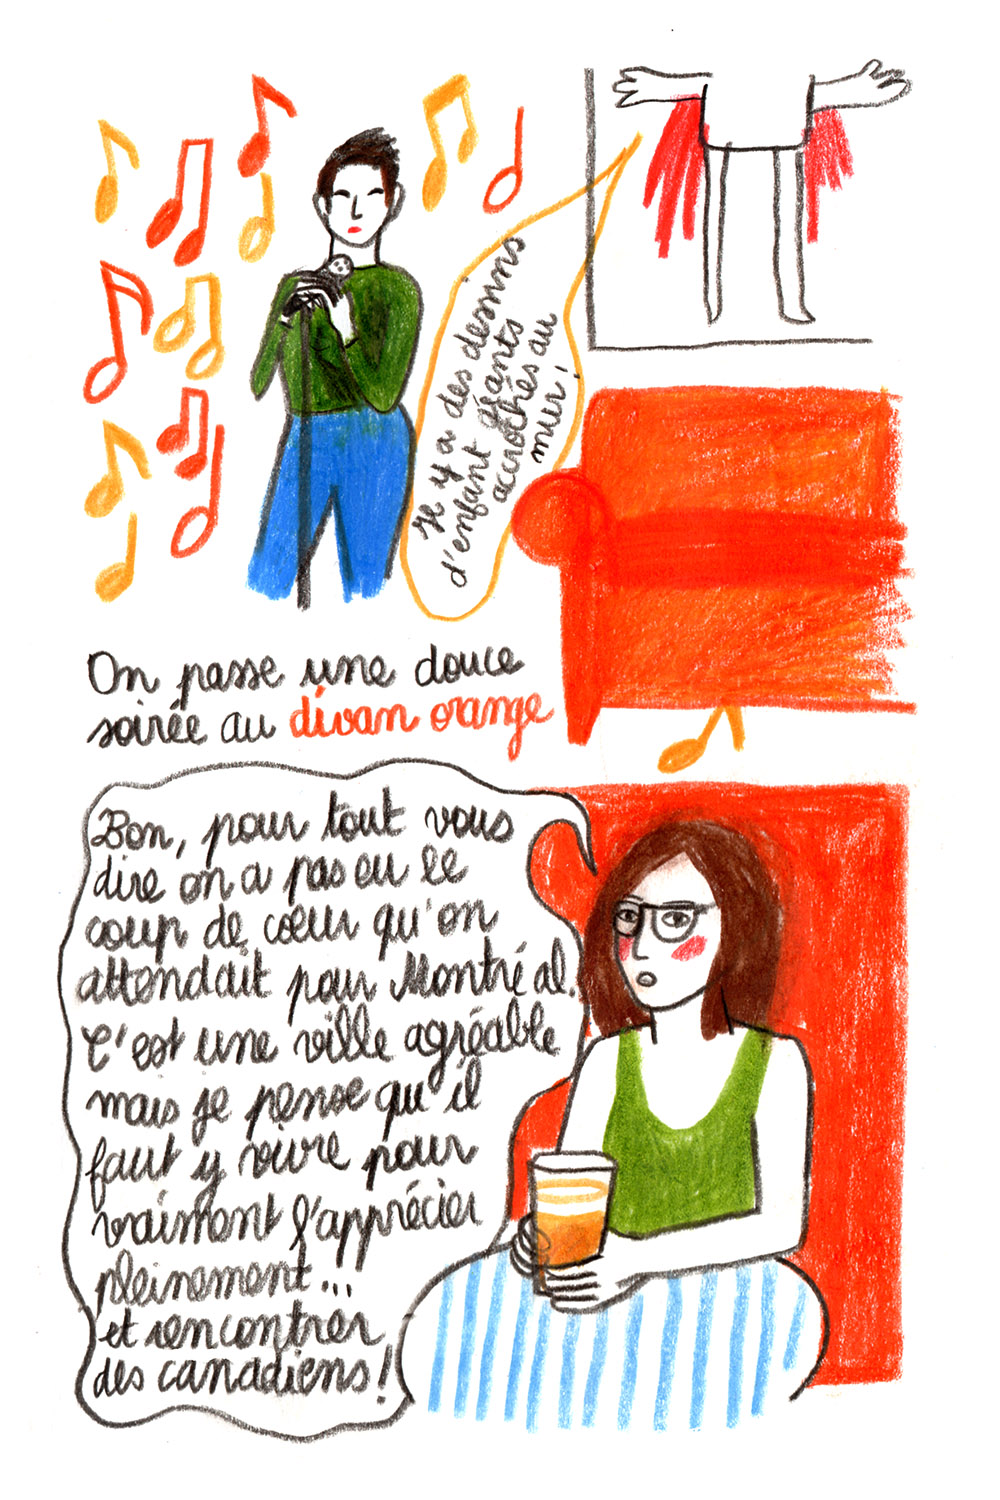 Il y a des dessins
d'enfant géants
accrochés au
mur !
On passe une douce
soirée au divan orange
Bon, pour tout vous
dire on a pas eu le
coup de cœur qu'on
attendait pour Montréal.
C'est une ville agréable
mais je pense qu'il
faut y vivre pour
vraiment l'apprécier
pleinement...
et rencontrer
des canadiens !